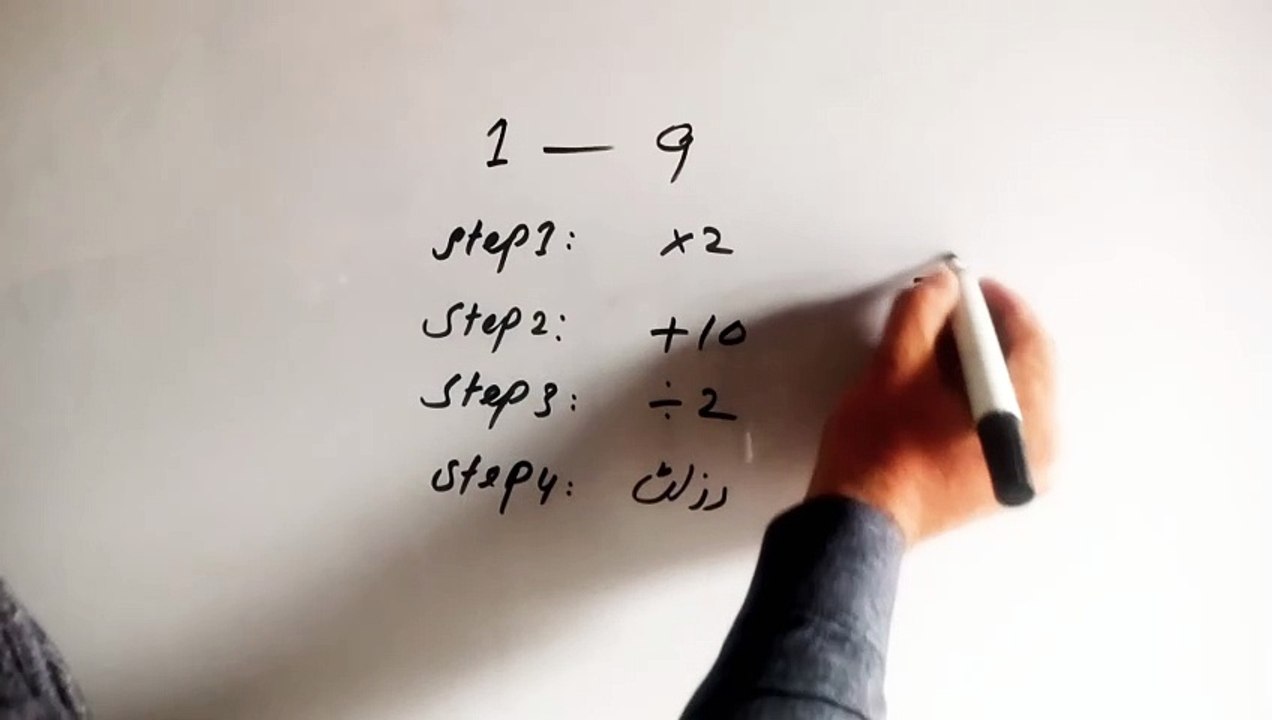 1 — 9
Step1: ×2
Step2: +10
Step3: ÷2
Step4: رزلٹ